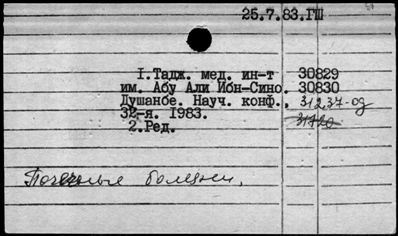 25.7.83.ГШ
1.Тадж. мед. ин-т 30829
им. Абу Али Ибн-Сино. 30830
Душанбе. Науч. конф., 31237-од
32-я. 1983.
2.Ред.
болезни.